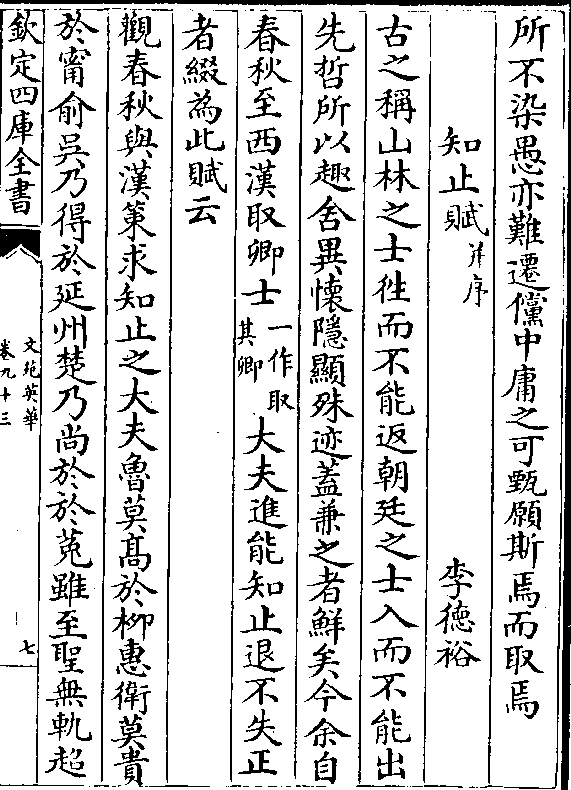 所不染愚亦難遷儻中庸之可甄願斯焉而取焉
知止賦并序
李德裕
古之稱山林之士徃而不能返朝廷之士入而不能出
先哲所以趣舍異懷隱顯殊迹蓋兼之者鮮矣今余自
春秋至西漢取卿士一作取其卿大夫進能知止退不失正
者綴為此賦云
觀春秋與漢策求知止之大夫魯莫髙於柳惠衛莫貴
於甯俞吳乃得於延州楚乃尚於於菟雖至聖無軌超
欽定四庫全書
文苑英華
卷九十三
七